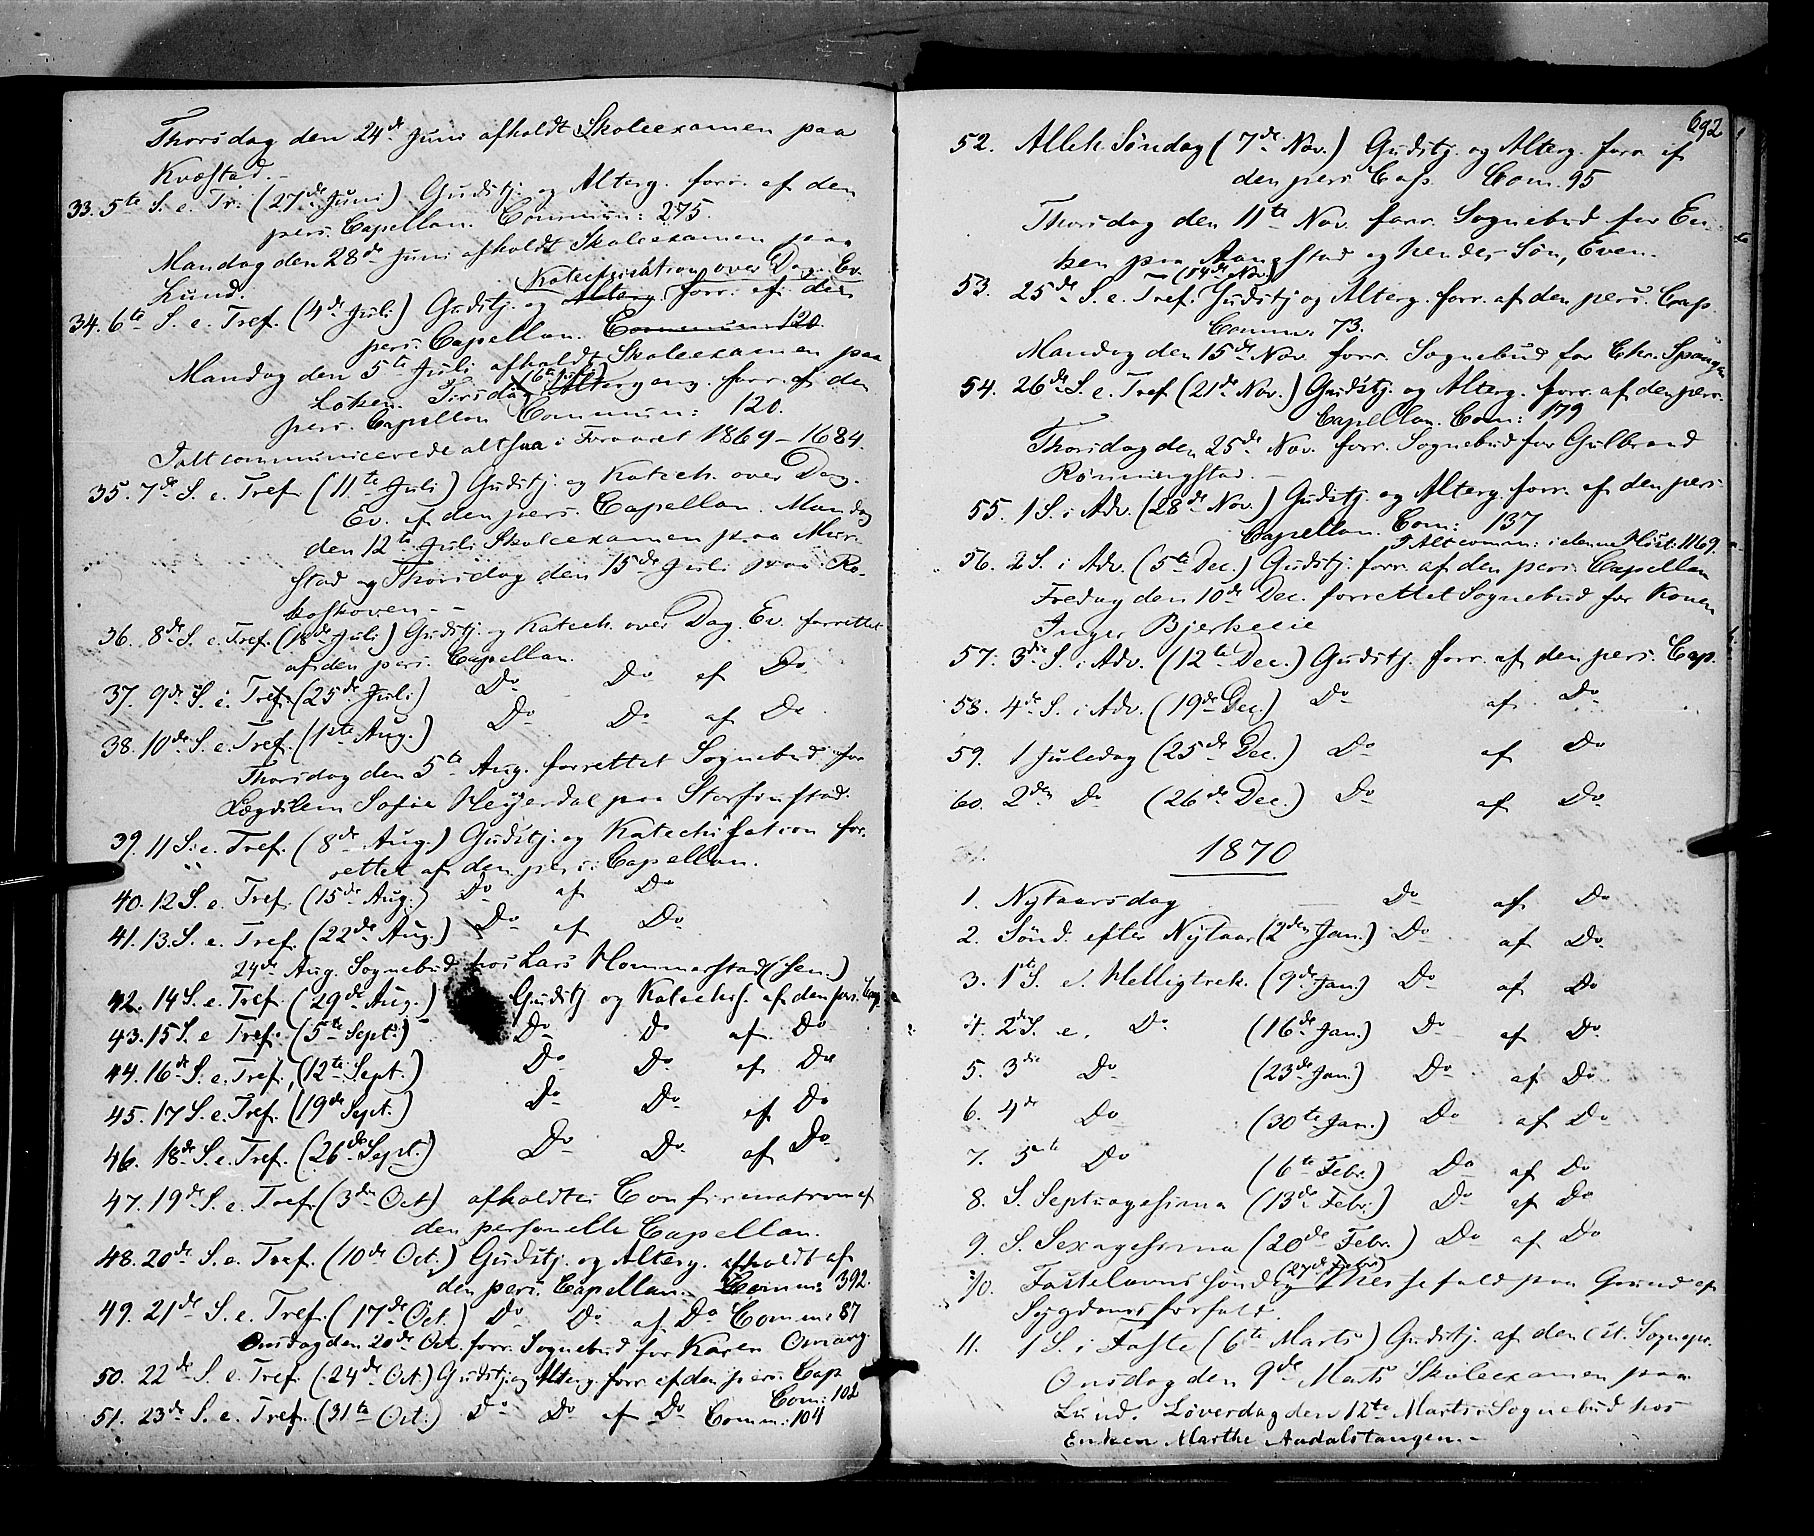 Thorsdag den 24de Juni afholdt Skoleexamen paa
Kvæstad.-
33. 5te S. e. Tr. (27de Juni) Gudstj. og Alterg. forr. af den
pers. Capellan. Commun: 275.
Mandag den 28de Juni afholdt Skoleexamen paa
Lund.
Katechisation over Dag. Ev.
34. 6te S. e. Tref. (4de Juli) Gudstj. og Alterg. forr. af den
pers. Capellan. Commun: 120
Mandag den 5te Juli afholdt Skoleexamen paa
Løken. Tirsdag (6te Juli) Altergang. forr. af den
pers. Capellan Commun: 120.
Ialt communicerede altsaa i Foraaret 1869 - 1684.
35. 7de S. e. Tref. (11te Juli) Gudstj. og Katech. over Dag.
Ev. af den pers. Capellan. Mandag
den 12te Juli Skoleexamen paa
stad og Thorsdag den 15de Juli paa Ro-
koskoven--
36. 8de S. e. Tref. (18de Juli) Gudstj. og Katech. over Dag. Ev. forrettet
af den pers. Capellan.
37. 9de S. e. Tref. (25de Juli) Do Do af Do
38. 10de S. e. Tref. (1ste Aug.) Do Do af Do
Thorsdag den 5te Aug. forrettet Sognebud for
Lægdslem Sofie Heyerdal paa Storfinstad.
39. 11 S. e. Tref. (8de Aug.) Gudstj. og Katechisation for-
rettet af den pers. Capellan.
40. 12 S. e. Tref. (15de Aug.) Do af Do
41. 13. S. e. Tref. (22de Aug.) Do af Do
24de Aug. Sognebud hos Lars Hommerstad (sen.)
42. 14 S. e. Tref. (29de Aug.) Gudstj. og Katechis. af den pers. Cap.
43. 15 S. e Tref. (5te Sept.) Do Do af Do
44. 16de S. e. Tref. (12te Sept.) Do Do af Do
45. 17 S. e. Tref. (19de Sept.) Do Do af Do
46. 18de S. e. Tref. (26de Sept.) Do Do af Do
47. 19de S. e. Tref. (3die Oct) afholdtes Confirmation af
den personelle Capellan.
48. 20de S. e. Tref. (10de Oct.) Gudstj. og Alterg. afholdt af
den pers. Capellan. Comm: 392.
49. 21de S. e. Tref. (17de Oct.) Do Do af Do Comm: 87
Onsdag den 20de Oct. forr. Sognebud for Karen
50. 22de S. e. Tref. (24de Oct.) Gudstj. og Alterg. forr. af den pers. Cap
Com: 102
51. 23de S. e. Tref. (31te Oct.) Do Do af Do Comm: 104
692
52. Alleh. Søndag (7de Nov.) Gudstj. og Alterg. forr. af
den pers Cap. Com. 95
Thorsdag den 11te Nov. forr. Sognebud for En-
ken paa Aangstad og hendes Søn, Even.
(14de Nov.)
53. 25de S. e. Tref. Gudstj og Alterg. forr. af den pers. Cap.
Comm: 73.
Mandag den 15de Nov. forr. Sognebud for Chr. Spangen
54. 26de S. e. Tref (21de Nov.) Gudstj. og Alterg. forr. af den pers.
Capellan. Com: 179
Thorsdag den 25de Nov. forr. Sognebud for Gulbrand
Rønningstad.-
55. 1 S. i Adv. (28de Nov.) Gudstj. og Alterg. forr. af den pers.
Capellan. Com: 137
I Alt comm: i denne Høst: 1169.
56. 2 S. i Adv. (5te Dec.) Gudstj. forr. af den pers. Capellan
Fredag den 10de Dec. forrettet Sognebud for Konen
Inger Bjerkeeie
57. 3die S. i Adv. (12te Dec.) Gudstj. forr. af den pers. Cap.
58. 4de S. i Adv. (19de Dec.) Do af Do
59. 1 Juledag (25de Dec.) Do af Do
60. 2den Do (26de Dec.) Do af Do
1870
1. Nytaarsdag Do af Do
2. Sønd. efter Nytaar (2den Jan.) Do af Do
3. 1ste S. e. Helligtrek. (9de Jan.) Do af Do
4. 2de S. e. Do (16de Jan.) Do af Do
5. 3die Do (23de Jan.) Do af Do
6. 4de Do (30te Jan.) Do af Do
7. 5te Do (6te Febr.) Do af Do
8. S. Septuagesima (13de Febr.) Do af Do
9. S. Sexagesima (20de Febr.) Do af Do
(27de Febr.)
10. Fastelavns søndag Messefald paa Grund af
Sygdomsforfald.
11. 1 S. i Faste (6te Marts) Gudstj. af den cst. Sognepr.
Onsdag den 9de Marts Skoleexamen paa
Lund. Løverdag den 12te Marts Sognebud hos
Enken Marthe Aadalstangen.-